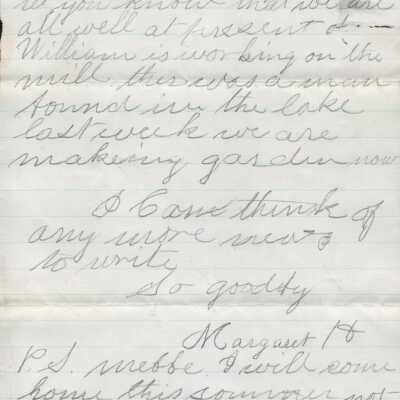 let you know that we are
all well at present &
William is working on the
mill ther was a man
found in the lake
last week we are
makeing garden now
I Cant think of
any more news
to write
So goodby
Margaret H
P.S. mebbe I will come
home this sommer not